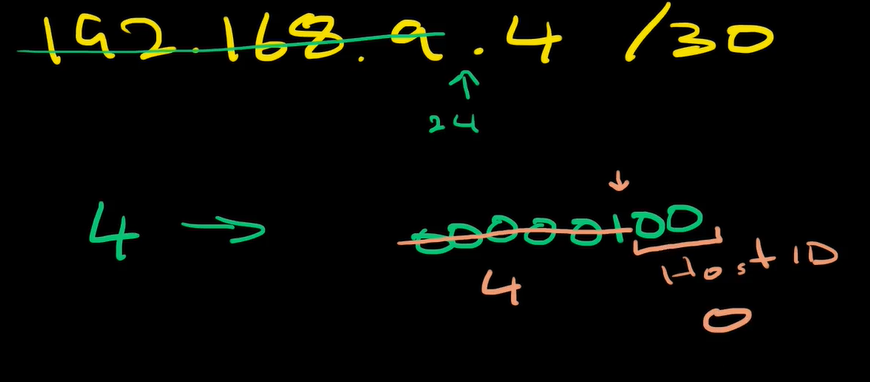 192.168.9.4 /30
↑
24
↓
4 → 00000100
4 Host ID
0